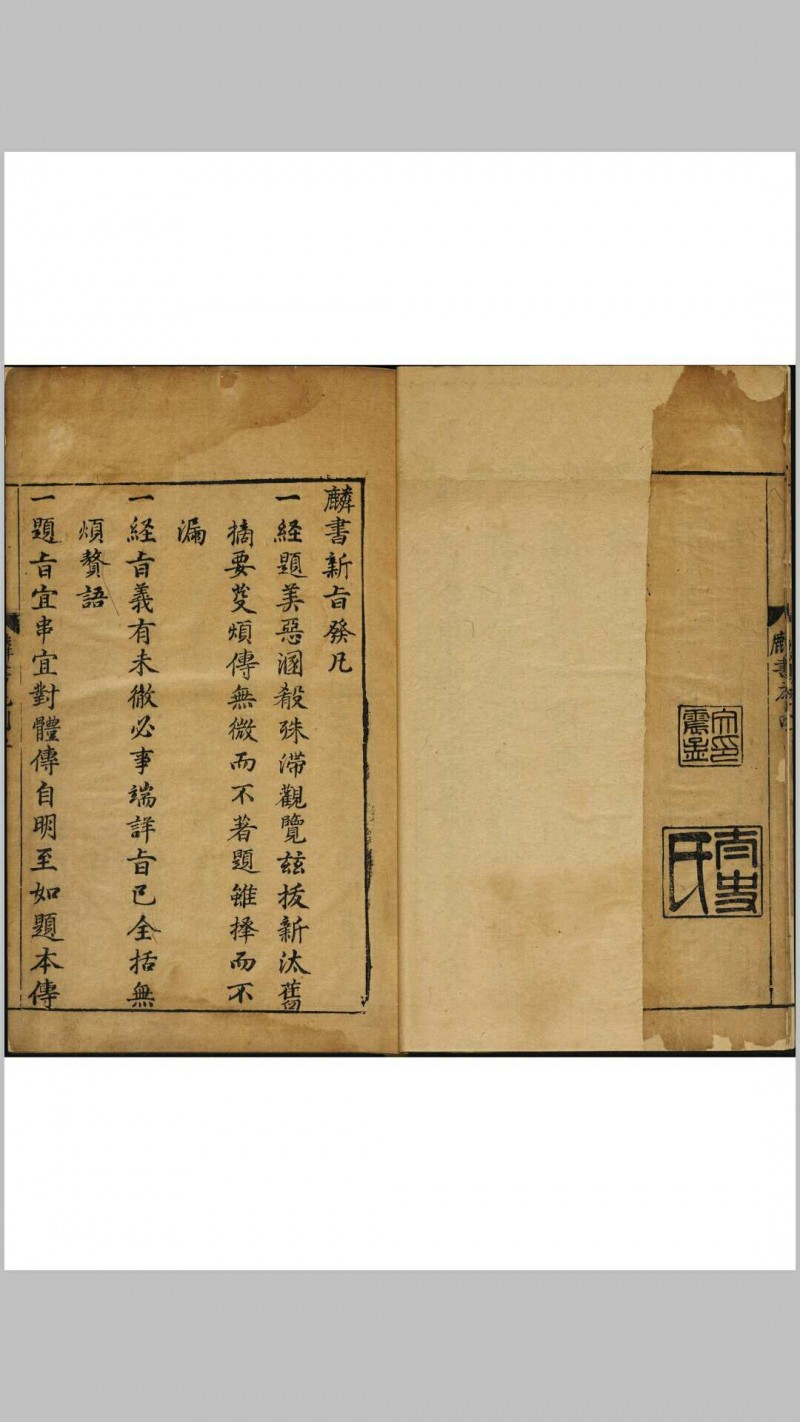 麟書
文印
震孟
太史
氏
麟書新旨發凡
一経題美惡溷殽殊滯觀覽玆拔新汰舊
摘要芟煩傳無微而不著題雖擇而不
漏
一経旨義有未徹必事端詳旨已全括無
煩贅語
一題旨宜串宜對體傳自明至如題本傳